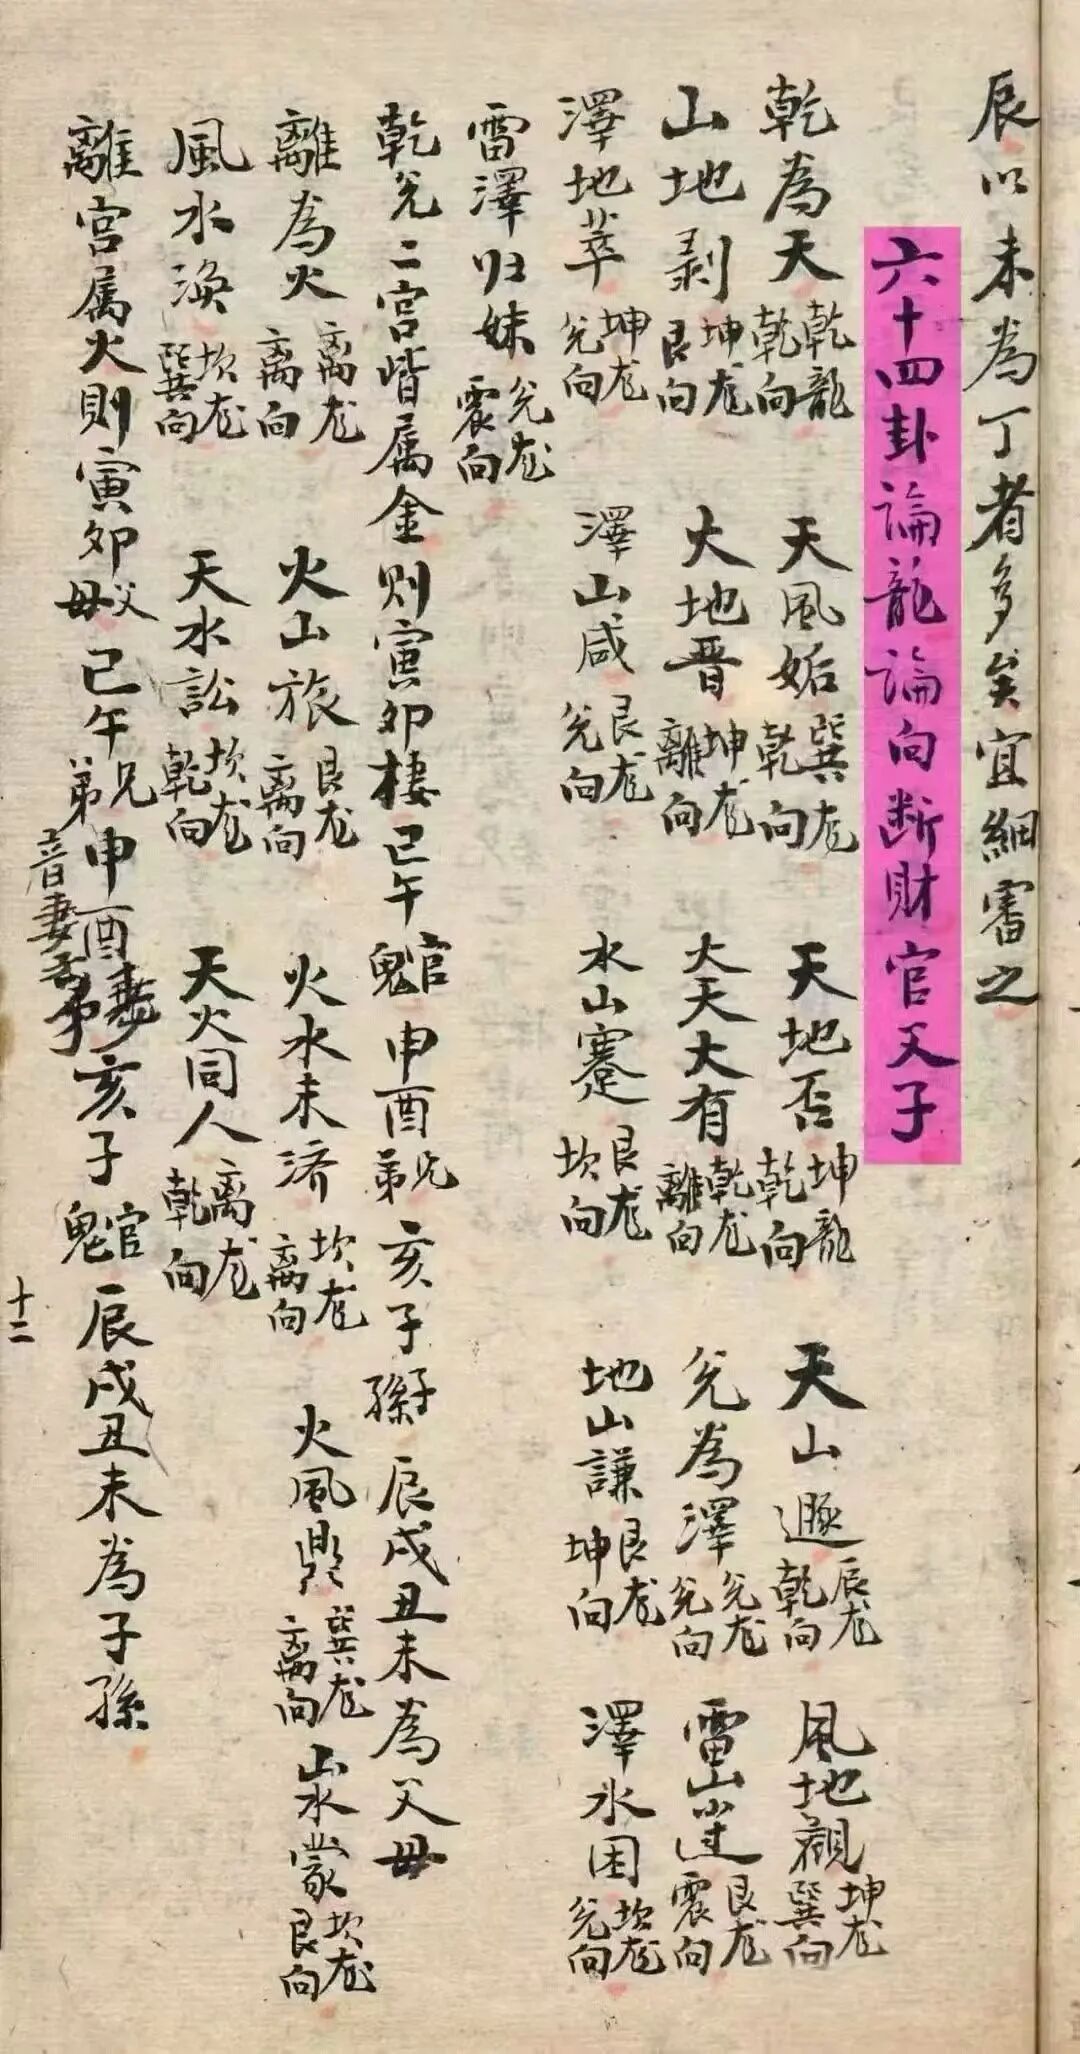 辰以未為丁者多矣宜細審之
六十四卦論龍論向断財官父子
乾為天 乾龍 乾向 天風姤 巽尨 乾向 天地否 坤龍 乾向 天山遯 辰尨 乾向 風地觀 坤尨 巽向
山地剥 坤尨 艮向 火地晋 坤尨 離向 火天大有 乾尨 離向 兊為澤 兊尨 兊向 雷山 艮尨 震向
澤地萃 坤尨 兊向 澤山咸 艮尨 兊向 水山蹇 艮尨 坎向 地山謙 艮尨 坤向 澤水困 坎尨 兊向
雷澤归妹 兊尨 震向
乾兊二宫皆属金则寅卯棲巳午官鬼申酉兄弟亥子子孫辰戌丑未為父毋
離為火 离尨 离向 火山旅 艮尨 离向 火水未済 坎尨 离向 火風鼎 巽尨 离向 山水蒙 坎尨 艮向
風水渙 坎尨 巽向 天水訟 坎尨 乾向 天火同人 离尨 乾向
離宫属火則寅夘父母巳午兄弟申酉妻亥子官鬼辰戌丑未為子孫
十二